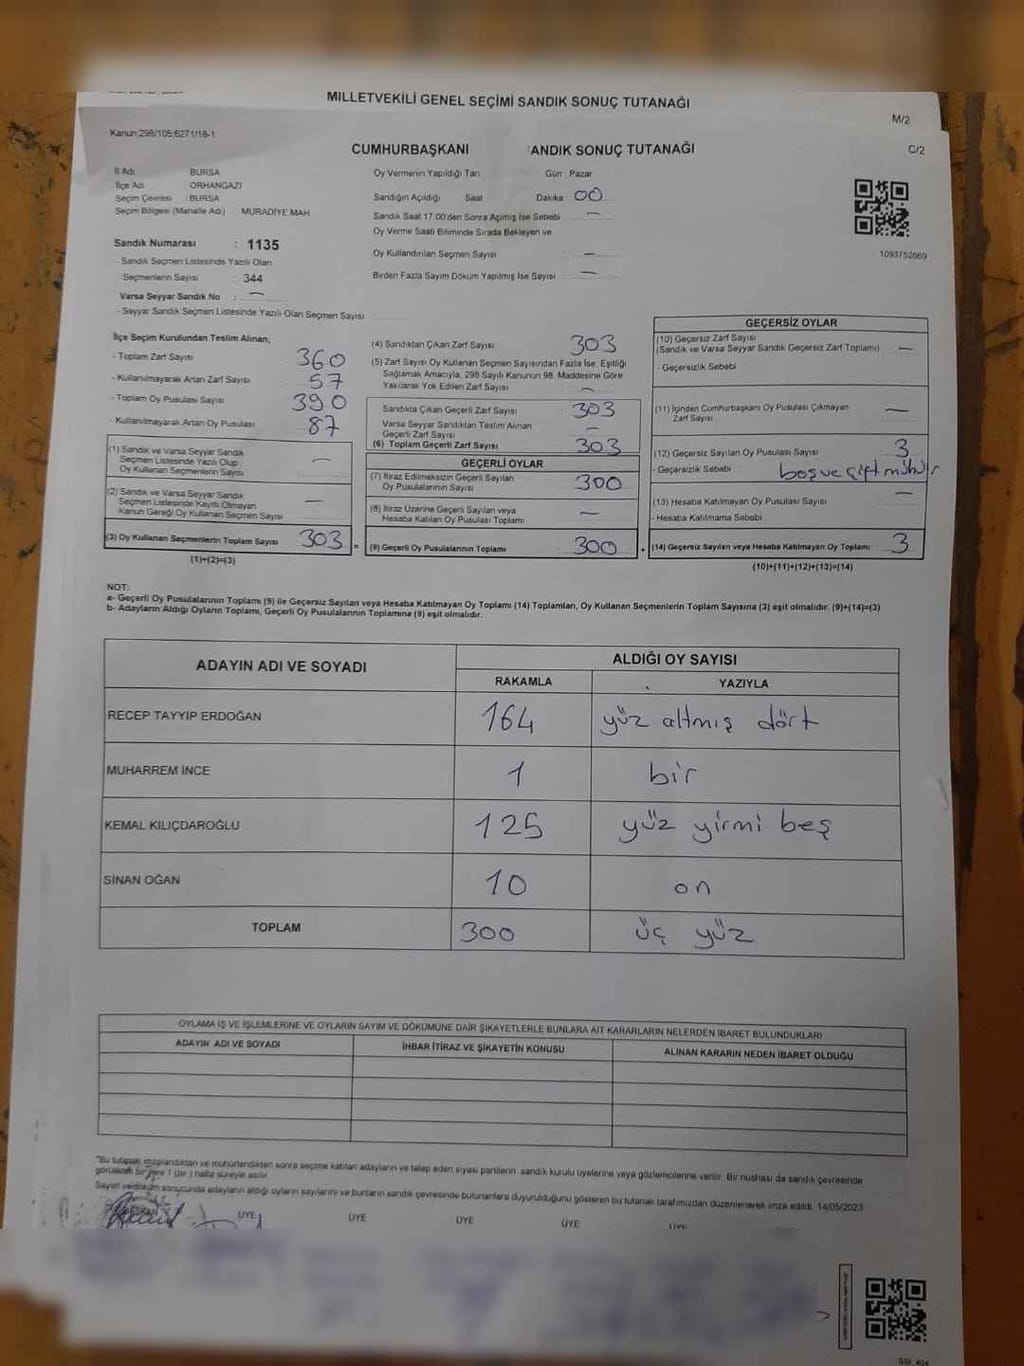 MİLLETVEKİLİ GENEL SEÇİMİ SANDIK SONUÇ TUTANAĞI
M/2
Kanun:298/105;6271/18-1
CUMHURBAŞKANI ANDIK SONUÇ TUTANAĞI
C/2
İl Adı BURSA
İlçe Adı ORHANGAZİ
Seçim Çevresi : BURSA
Seçim Bölgesi (Mahalle Adı) MURADİYE MAH.
Sandık Numarası : 1135
- Sandık Seçmen Listesinde Yazılı Olan
Seçmenlerin Sayısı : 344
Varsa Seyyar Sandık No : —
- Seyyar Sandık Seçmen Listesinde Yazılı Olan Seçmen Sayısı
Oy Vermenin Yapıldığı Tari Gün : Pazar
Sandığın Açıldığı Saat Dakika 00
Sandık Saat 17.00'den Sonra Açılmış İse Sebebi —
Oy Verme Saati Bitiminde Sırada Bekleyen ve
Oy Kullandırılan Seçmen Sayısı —
Birden Fazla Sayım Döküm Yapılmış İse Sayısı —
1093752669
İlçe Seçim Kurulundan Teslim Alınan;
- Toplam Zarf Sayısı 360
- Kullanılmayarak Artan Zarf Sayısı 57
- Toplam Oy Pusulası Sayısı 390
- Kullanılmayarak Artan Oy Pusulası 87
(1) Sandık ve Varsa Seyyar Sandık
Seçmen Listesinde Yazılı Olup
Oy Kullanan Seçmenlerin Sayısı —
(2) Sandık ve Varsa Seyyar Sandık
Seçmen Listesinde Kayıtlı Olmayan
Kanun Gereği Oy Kullanan Seçmen Sayısı —
(3) Oy Kullanan Seçmenlerin Toplam Sayısı 303 =
(1)+(2)=(3)
(4) Sandıktan Çıkan Zarf Sayısı 303
(5) Zarf Sayısı Oy Kullanan Seçmen Sayısından Fazla İse, Eşitliği
Sağlamak Amacıyla, 298 Sayılı Kanunun 98. Maddesine Göre
Yakılarak Yok Edilen Zarf Sayısı —
Sandıkta Çıkan Geçerli Zarf Sayısı 303
Varsa Seyyar Sandıktan Teslim Alınan
Geçerli Zarf Sayısı —
(6) Toplam Geçerli Zarf Sayısı 303
GEÇERLİ OYLAR
(7) İtiraz Edilmeksizin Geçerli Sayılan
Oy Pusulalarının Sayısı 300
(8) İtiraz Üzerine Geçerli Sayılan veya
Hesaba Katılan Oy Pusulası Toplamı —
(9) Geçerli Oy Pusulalarının Toplamı 300 +
GEÇERSİZ OYLAR
(10) Geçersiz Zarf Sayısı
(Sandık ve Varsa Seyyar Sandık Geçersiz Zarf Toplamı) —
- Geçersizlik Sebebi
(11) İçinden Cumhurbaşkanı Oy Pusulası Çıkmayan
Zarf Sayısı —
(12) Geçersiz Sayılan Oy Pusulası Sayısı 3
- Geçersizlik Sebebi boş ve çift mühür
(13) Hesaba Katılmayan Oy Pusulası Sayısı —
- Hesaba Katılmama Sebebi
(14) Geçersiz Sayılan veya Hesaba Katılmayan Oy Toplamı 3
(10)+(11)+(12)+(13)=(14)
NOT:
a- Geçerli Oy Pusulalarının Toplamı (9) ile Geçersiz Sayılan veya Hesaba Katılmayan Oy Toplamı (14) Toplamları, Oy Kullanan Seçmenlerin Toplam Sayısına (3) eşit olmalıdır. (9)+(14)=(3)
b- Adayların Aldığı Oyların Toplamı, Geçerli Oy Pusulalarının Toplamına (9) eşit olmalıdır.
ADAYIN ADI VE SOYADI ALDIĞI OY SAYISI
RAKAMLA YAZIYLA
RECEP TAYYİP ERDOĞAN 164 yüz altmış dört
MUHARREM İNCE 1 bir
KEMAL KILIÇDAROĞLU 125 yüz yirmi beş
SİNAN OĞAN 10 on
TOPLAM 300 üç yüz
OYLAMA İŞ VE İŞLEMLERİNE VE OYLARIN SAYIM VE DÖKÜMÜNE DAİR ŞİKAYETLERLE BUNLARA AİT KARARLARIN NELERDEN İBARET BULUNDUKLARI
ADAYIN ADI VE SOYADI İHBAR İTİRAZ VE ŞİKAYETİN KONUSU ALINAN KARARIN NEDEN İBARET OLDUĞU
"Bu tutanak imzalandıktan ve mühürlendikten sonra seçime katılan adayların ve talep eden siyasi partilerin sandık kurulu üyelerine veya gözlemcilerine verilir. Bir nüshası da sandık çevresinde
görülecek bir yere 1 (bir) hafta süreyle asılır.
Sayım ve döküm sonucunda adayların aldığı oyların sayılarını ve bunların sandık çevresinde bulunanlara duyurulduğunu gösteren bu tutanak tarafımızdan düzenlenerek imza edildi. 14/05/2023
ÜYE ÜYE ÜYE ÜYE ÜYE